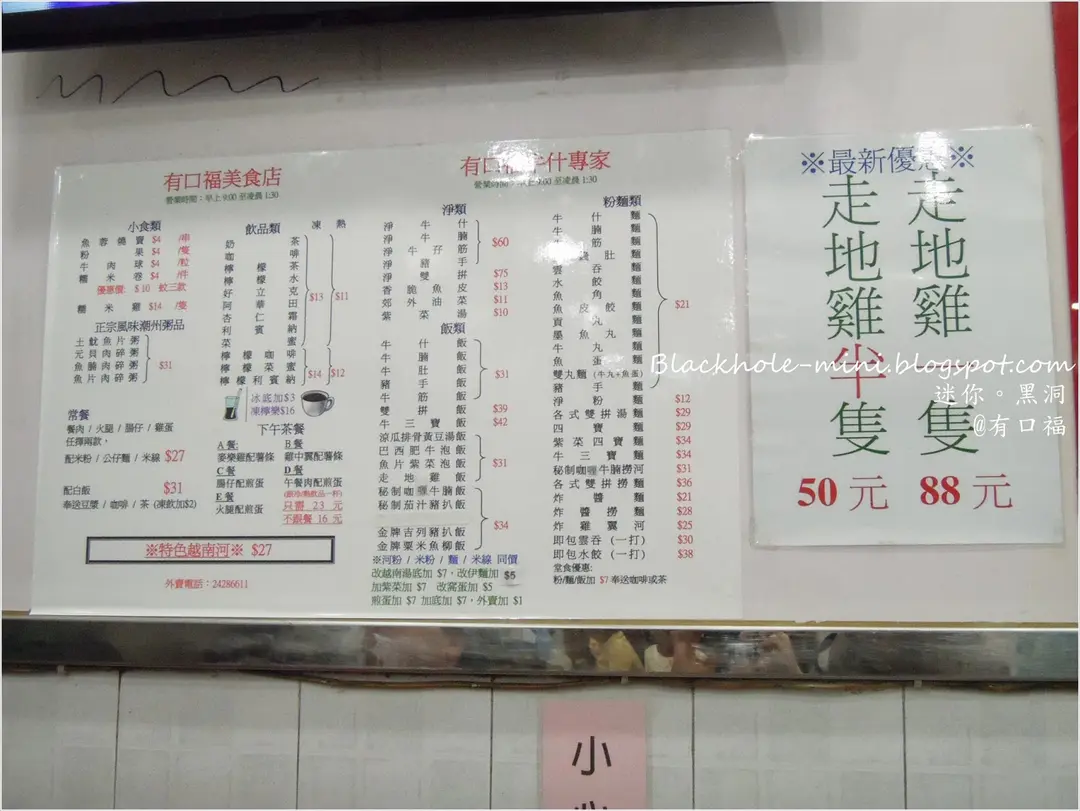 有口福美食店
營業時間：早上 9:00 至凌晨 1:30
小食類
魚蓉燒賣 $4 /串
粉果 $4 /隻
牛肉球 $4 /粒
糯米卷 $4 /件
優惠價: $10 蚊三款
糯米雞 $14 /隻
正宗風味潮州粥品
土魷魚片粥
元貝肉碎粥
魚腩肉碎粥
魚片肉碎粥
$31
常餐
餐肉 / 火腿 / 腸仔 / 雞蛋
任擇兩款，
配米粉 / 公仔麵 / 米線 $27
配白飯 $31
奉送豆漿 / 咖啡 / 茶 (凍飲加$2)
飲品類 凍 熱
奶茶
咖啡
檸檬茶
檸檬水
好立克
阿華田
杏仁霜
利賓納
菜蜜
$13 $11
檸檬咖啡
檸檬菜蜜
檸檬利賓納
$14 $12
冰底加$3
凍檸樂$16
下午茶餐
A 餐:
麥樂雞配薯條
B 餐
雞中翼配薯條
C 餐
腸仔配煎蛋
D 餐
午餐肉配煎蛋
E 餐
火腿配煎蛋
只需 23 元
不跟餐 16 元
※特色越南河※ $27
外賣電話：24286611
有口 牛什專家
營業時間：早上 9:00 至凌晨 1:30
淨類
淨牛什
淨牛腩
淨牛孖筋
淨豬手
$60
淨雙拼 $75
香脆魚皮 $13
郊外油菜 $11
紫菜湯 $10
飯類
牛什飯
牛腩飯
牛肚飯
豬手飯
牛筋飯
$31
雙拼飯 $39
牛三寶飯 $42
涼瓜排骨黃豆湯飯
巴西肥牛泡飯
魚片紫菜泡飯
走地雞飯
$31
秘制咖喱牛腩飯
秘制茄汁豬扒飯
金牌吉列豬扒飯
金牌粟米魚柳飯
$34
※河粉 / 米粉 / 麵 / 米線 同價
改越南湯底加 $7，改伊麵加 $5
加紫菜加 $7 改窩蛋加 $5
煎蛋加 $7 加底加 $7，外賣加 $1
粉麵類
牛什麵
牛腩麵
牛筋麵
肚麵
雲吞麵
水餃麵
魚角麵
魚皮餃麵
貢丸麵
墨魚丸麵
牛丸麵
魚蛋麵
雙丸麵 (牛丸+魚蛋)
$21
淨粉麵 $12
各式雙拼湯麵 $29
四寶麵 $29
紫菜四寶麵 $34
牛三寶麵 $34
秘制咖喱牛腩撈河 $31
各式雙拼撈麵 $36
炸醬 $21
炸醬撈麵 $28
炸雞翼河 $25
即包雲吞 (一打) $30
即包水餃 (一打) $38
堂食優惠:
粉/麵/飯加 $7 奉送咖啡或茶
※最新優惠※
走地雞半隻
50 元
走地雞隻
88 元
Blackhole-mini.blogspot.com
迷你。黑洞
@有口福
小